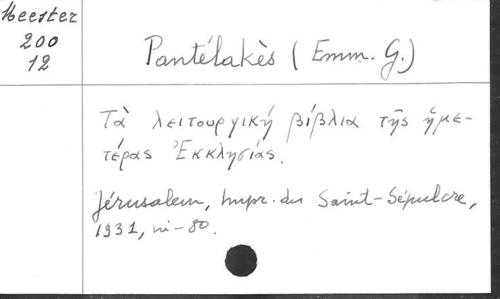 Meester
200
12
Pantélakès (Emm. G.)
Τὰ λειτουργική βίβλια τῆς ἡμε-
τέρας Ἐκκλησίας.
Jérusalem, Impr. du Saint-Sépulcre,
1931, in-80.